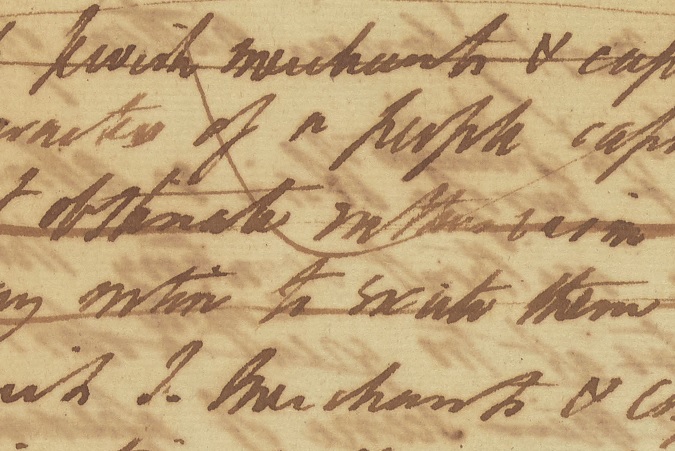 Jewish merchants & cap
of a people cap
obstinate enthusiasm
motive to excite them
J. Merchants & C